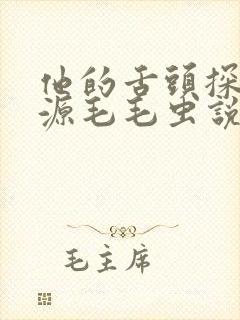 他的舌頭探
源毛毛虫說
毛主席